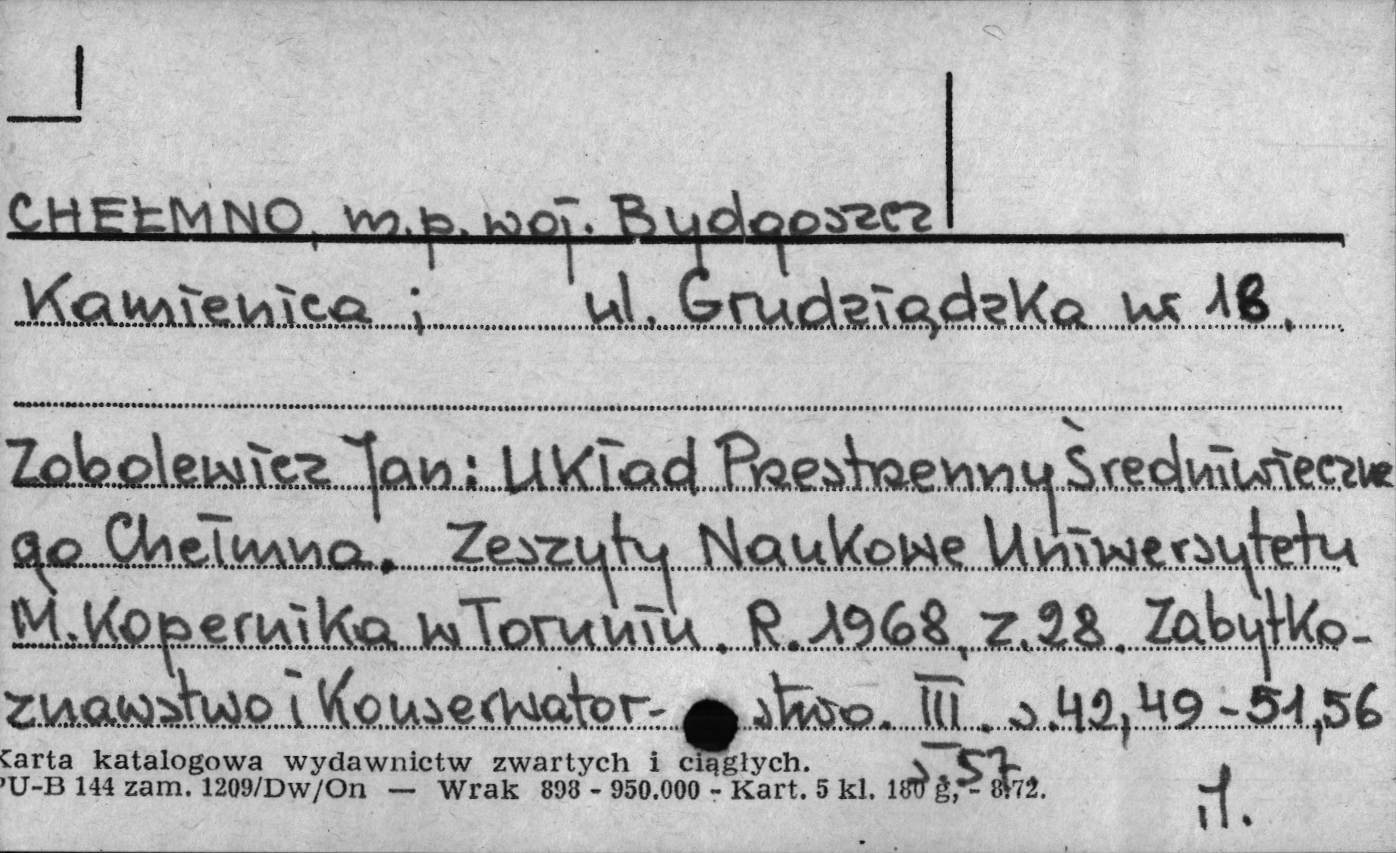 CHEŁMNO, m.p. woj. Bydgoszcz
Kamienica ; ul. Grudziądzka nr 18.
Zobolewicz Jan: Układ Przestrzenny Średniwieczne
go Chełmna. Zeszyty Naukowe Uniwersytetu
M. Kopernika w Toruniu. R. 1968, z. 28. Zabytko-
znawstwo i Konserwator- stwo. III. s. 42, 49 - 51, 56
s. 57.
il.
Karta katalogowa wydawnictw zwartych i ciągłych.
PU-B 144 zam. 1209/Dw/On — Wrak 898 - 950.000 - Kart. 5 kl. 180 g, - 8.72.